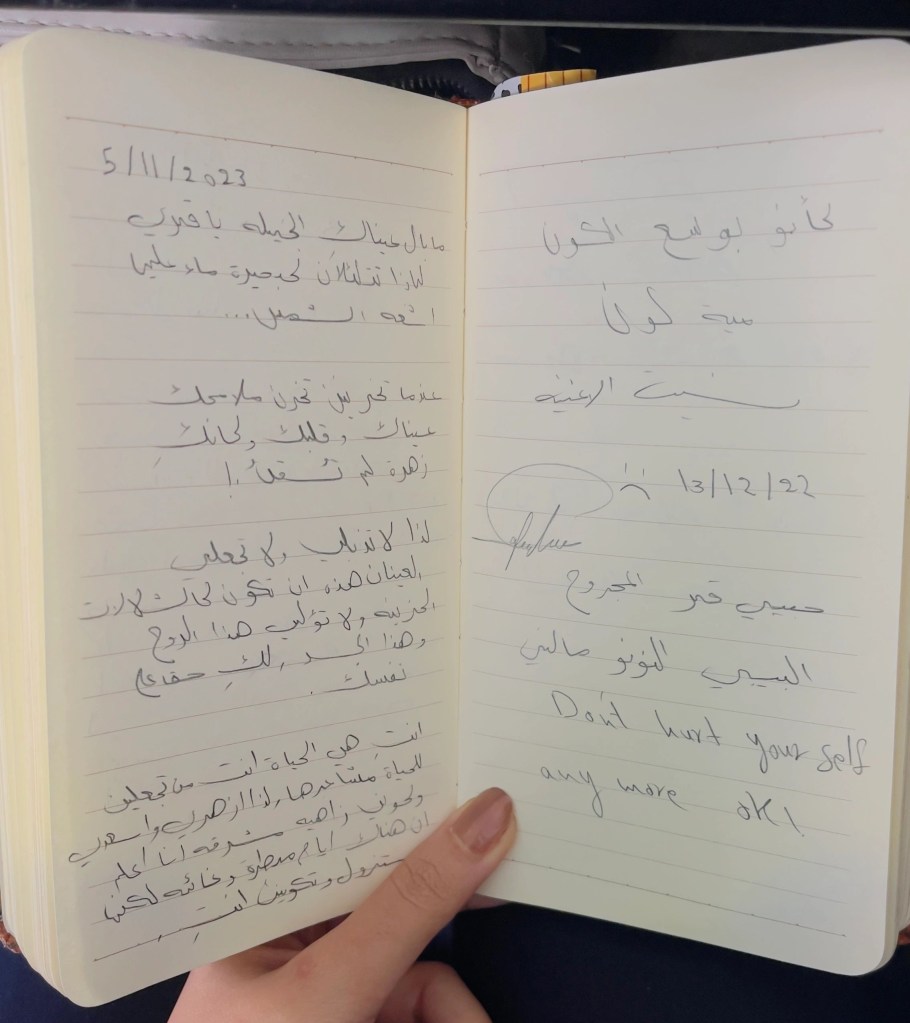 5/11/2023
ما بال عيناك الجميله يا قمري
لماذا تتلئلأن كبحيرة ماء عليها
اشعه الشمس...
عندما تحزنين تحزن ملامحك
عيناك وقلبك وكانكِ
زهرة لم تُسقَ !
لذا لا تذبلي ولا تجعلي
العينان هذه ان تكون كالشلالات
الحزينه ولا تؤلمي هذا الروح
وهذا الجسد , لكِ حقاً على
نفسك .
انتِ هي الحياة انت من تجعلين
للحياة مشاعرها , لذا ازهري واسعدي
وكوني زاهيه مشرقه انا اعلم
ان هناك ايام ممطرة وغائمه لكنها
ستزول وتكوني انتِ
كأنو بوسع الكون
مية كون
نسيت الاغنية
13/12/22
حبيبي قمر المجروح
البيبي النونو مالتي
Don't hurt your self
any more ok!